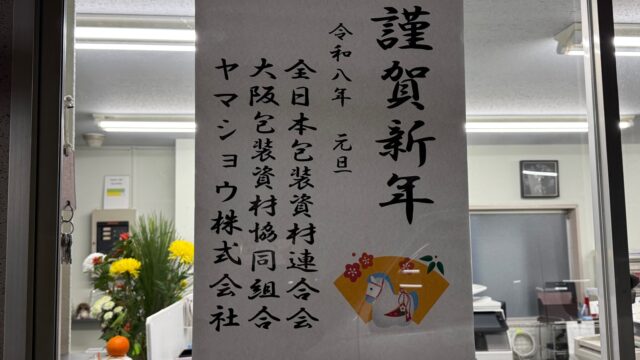 謹賀新年
令和八年 元旦
全日本包装資材連合会
大阪包装資材協同組合
ヤマショウ株式会社